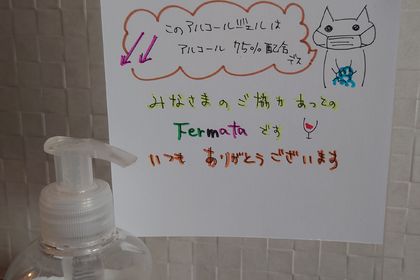 このアルコールジェルは
アルコール 75%配合
デス
みなさまのご協力あっての
Fermataです
いつも ありがとうございます